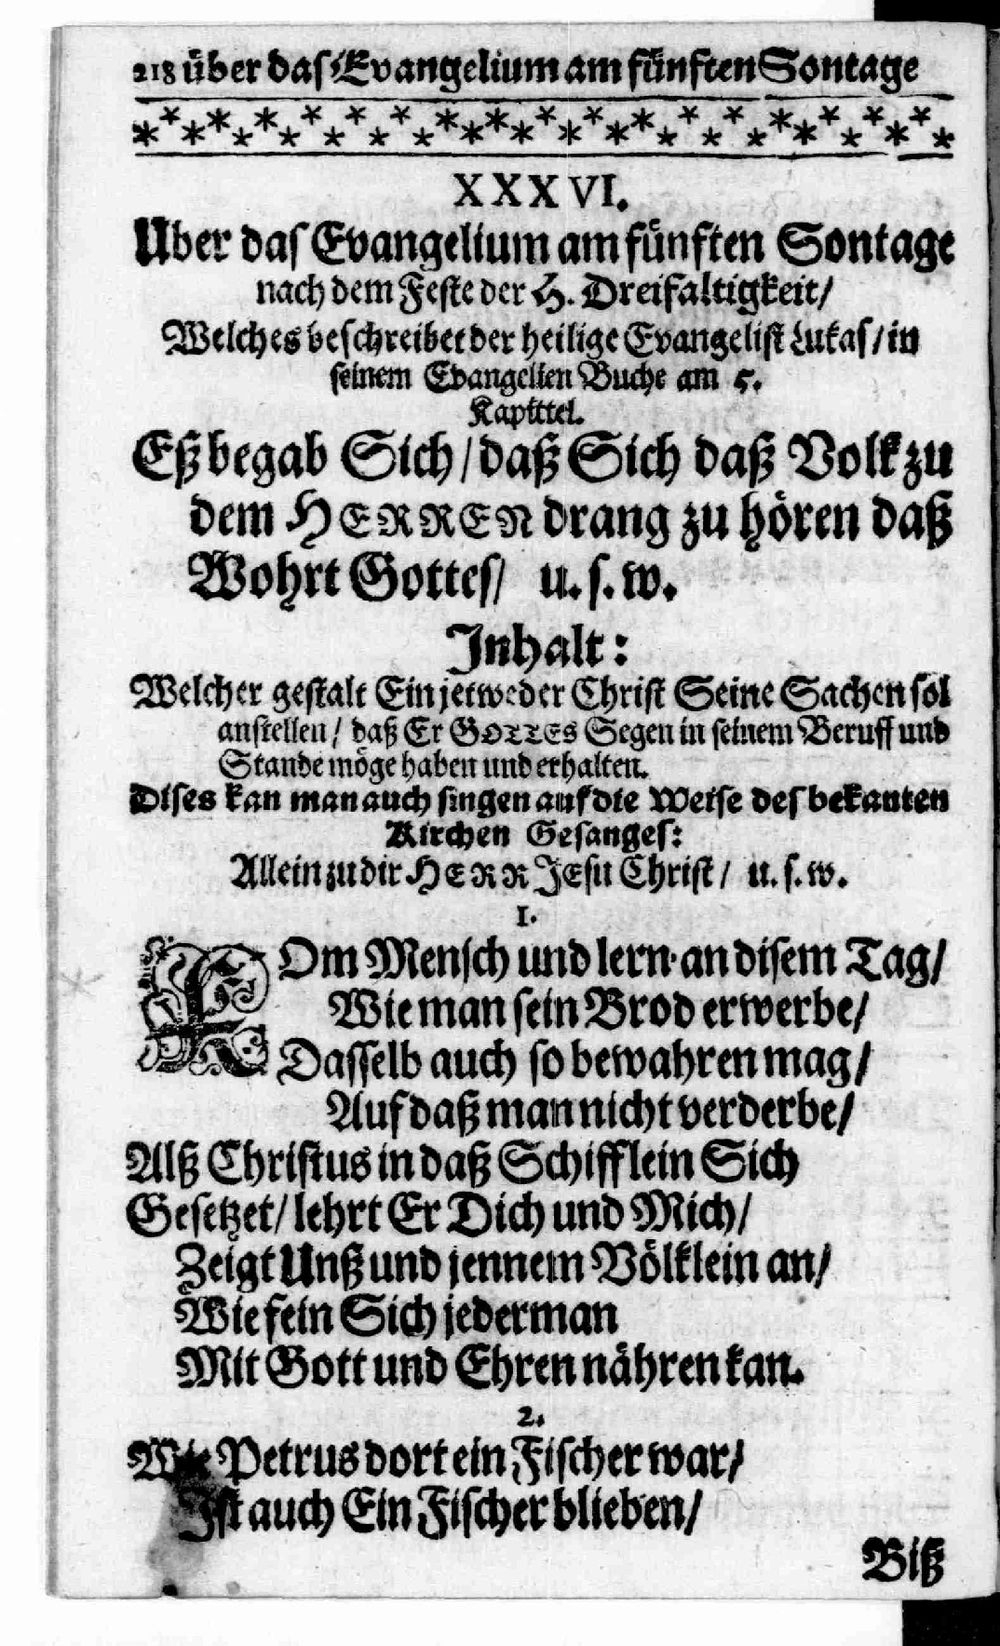 218 über das Evangelium am fünften Sontage
XXXVI.
Uber das Evangelium am fünften Sontage
nach dem Feste der H. Dreifaltigkeit/
Welches beschreibet der heilige Evangelist Lukas/ in
seinem Evangelien Buche am 5.
Kapittel.
Eß begab Sich/ daß Sich daß Volk zu
dem HERREN drang zu hören daß
Wohrt Gottes/ u. s. w.
Inhalt:
Welcher gestalt Ein jetweder Christ Seine Sachen sol
anstellen/ daß Er GOTTES Segen in seinem Beruff und
Stande möge haben und erhalten.
Dises kan man auch singen auf die Weise des bekanten
Kirchen Gesanges:
Allein zu dir HERR JEsu Christ/ u. s. w.
1.
KOm Mensch und lern an disem Tag/
Wie man sein Brod erwerbe/
Dasselb auch so bewahren mag/
Auf daß man nicht verderbe/
Alß Christus in daß Schifflein Sich
Gesetzet/ lehrt Er Dich und Mich/
Zeigt Unß und jennem Völklein an/
Wie fein Sich jederman
Mit Gott und Ehren nähren kan.
2.
Wie Petrus dort ein Fischer war/
Ist auch Ein Fischer blieben/
Biß